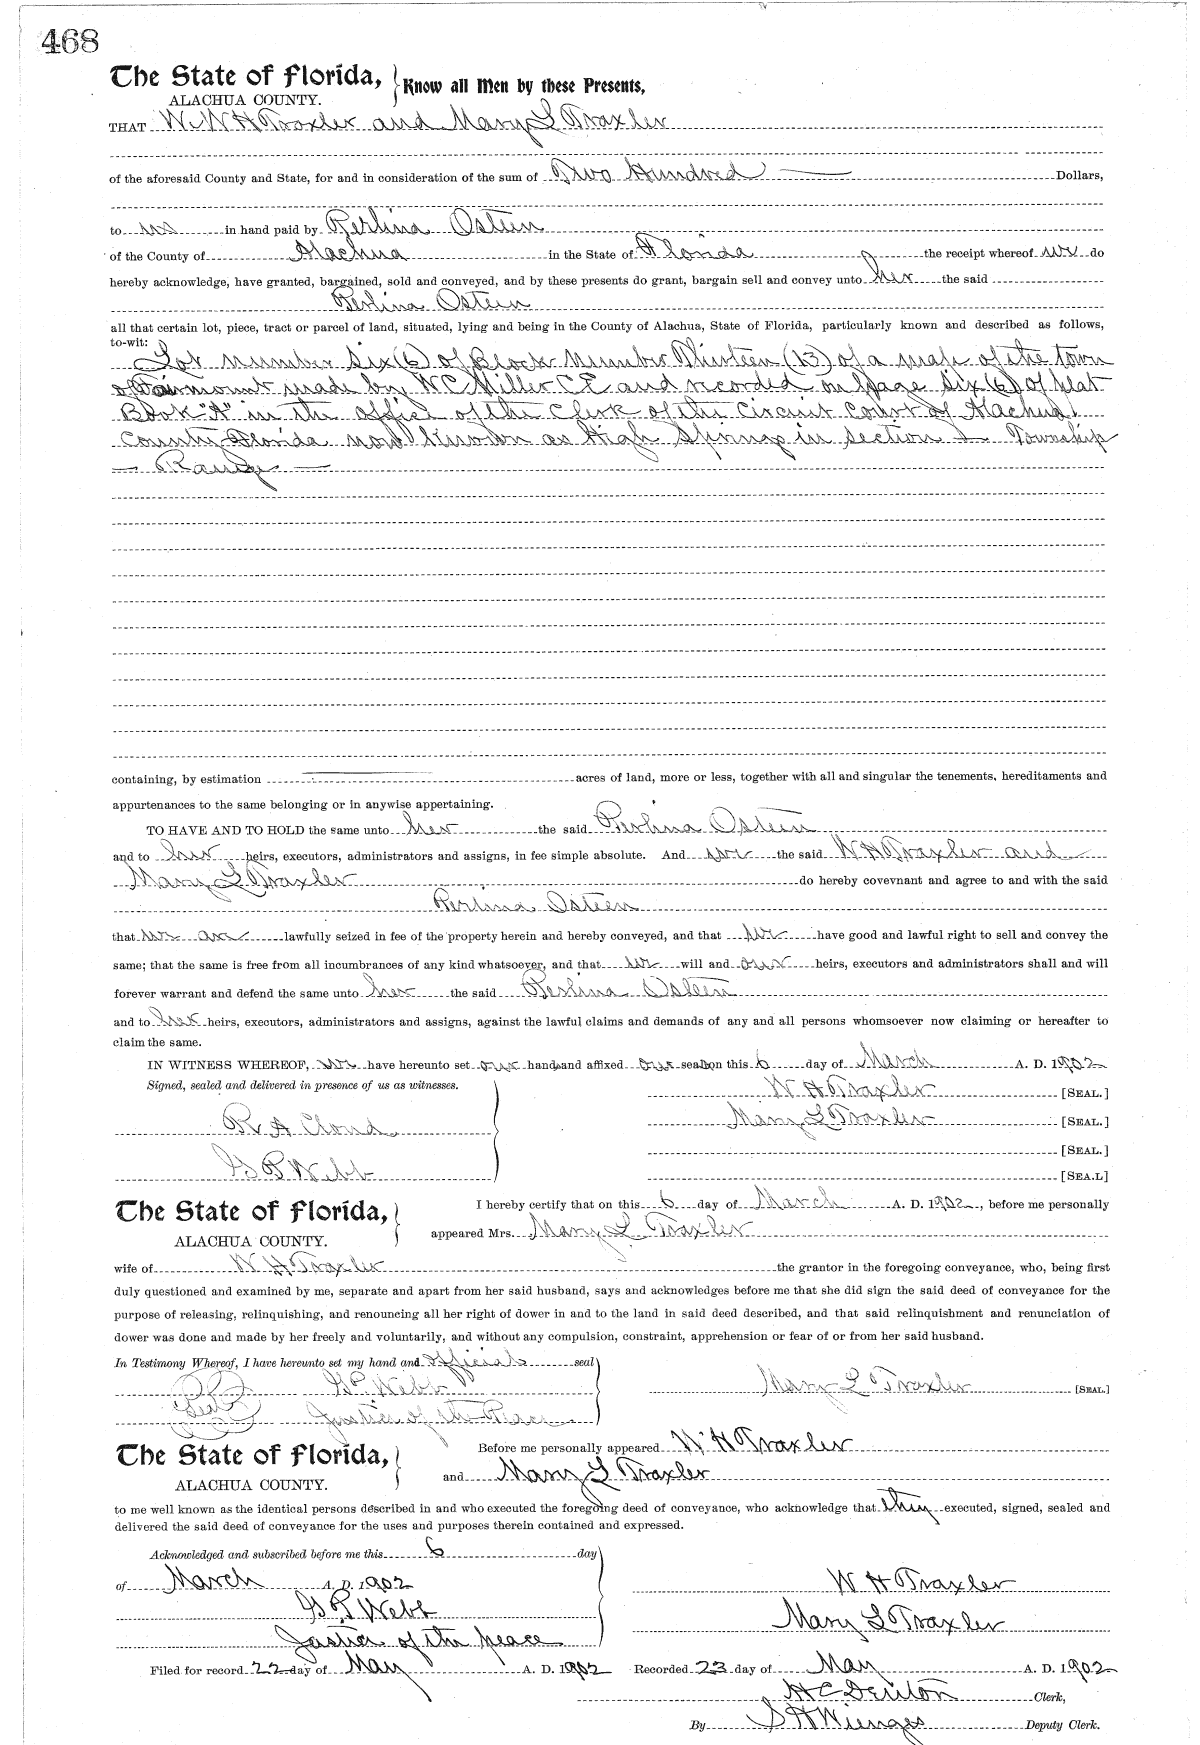 468
The State of Florida, Know all Men by these Presents,
ALACHUA COUNTY.
THAT W. H Traxler and Mary L Traxler
of the aforesaid County and State, for and in consideration of the sum of Two Hundred Dollars,
to us in hand paid by Perlina Osteen
of the County of Alachua in the State of Florida the receipt whereof we do
hereby acknowledge, have granted, bargained, sold and conveyed, and by these presents do grant, bargain sell and convey unto her the said
Perlina Osteen
all that certain lot, piece, tract or parcel of land, situated, lying and being in the County of Alachua, State of Florida, particularly known and described as follows,
to-wit:
Lot number Six (6) of Block Number Thirteen (13) of a map of the town
of Fairmount made by N C Miller C E and recorded on page six (6) of plat
Book "A" in the office of the Clerk of the Circuit Court of Alachua
County Florida now known as High Springs in section Township
Range
containing, by estimation acres of land, more or less, together with all and singular the tenements, hereditaments and
appurtenances to the same belonging or in anywise appertaining.
TO HAVE AND TO HOLD the same unto her the said Perlina Osteen
and to her heirs, executors, administrators and assigns, in fee simple absolute. And we the said W H Traxler and
Mary L Traxler do hereby covevnant and agree to and with the said
Perlina Osteen
that we are lawfully seized in fee of the property herein and hereby conveyed, and that we have good and lawful right to sell and convey the
same; that the same is free from all incumbrances of any kind whatsoever, and that we will and our heirs, executors and administrators shall and will
forever warrant and defend the same unto her the said Perlina Osteen
and to her heirs, executors, administrators and assigns, against the lawful claims and demands of any and all persons whomsoever now claiming or hereafter to
claim the same.
IN WITNESS WHEREOF, we have hereunto set our hands and affixed our seals on this 6 day of March A. D. 1902
Signed, sealed and delivered in presence of us as witnesses. W H Traxler [SEAL.]
R A Cloud Mary L Traxler [SEAL.]
[SEAL.]
G P Webb [SEA.L]
The State of Florida, I hereby certify that on this 6 day of March A. D. 1902, before me personally
ALACHUA COUNTY. appeared Mrs. Mary L Traxler
wife of W H Traxler the grantor in the foregoing conveyance, who, being first
duly questioned and examined by me, separate and apart from her said husband, says and acknowledges before me that she did sign the said deed of conveyance for the
purpose of releasing, relinquishing, and renouncing all her right of dower in and to the land in said deed described, and that said relinquishment and renunciation of
dower was done and made by her freely and voluntarily, and without any compulsion, constraint, apprehension or fear of or from her said husband.
In Testimony Whereof, I have hereunto set my hand and official seal
G P Webb Mary L Traxler [SEAL.]
Seal Justice of the Peace
The State of Florida, Before me personally appeared W H Traxler
ALACHUA COUNTY. and Mary L Traxler
to me well known as the identical persons described in and who executed the foregoing deed of conveyance, who acknowledge that they executed, signed, sealed and
delivered the said deed of conveyance for the uses and purposes therein contained and expressed.
Acknowledged and subscribed before me this 6 day
of March A. D. 1902 W H Traxler
G P Webb Mary L Traxler
Justice of the peace
Filed for record 22 day of May A. D. 1902 Recorded 23 day of May A. D. 1902
H C Denton Clerk,
By S H Wienges Deputy Clerk.